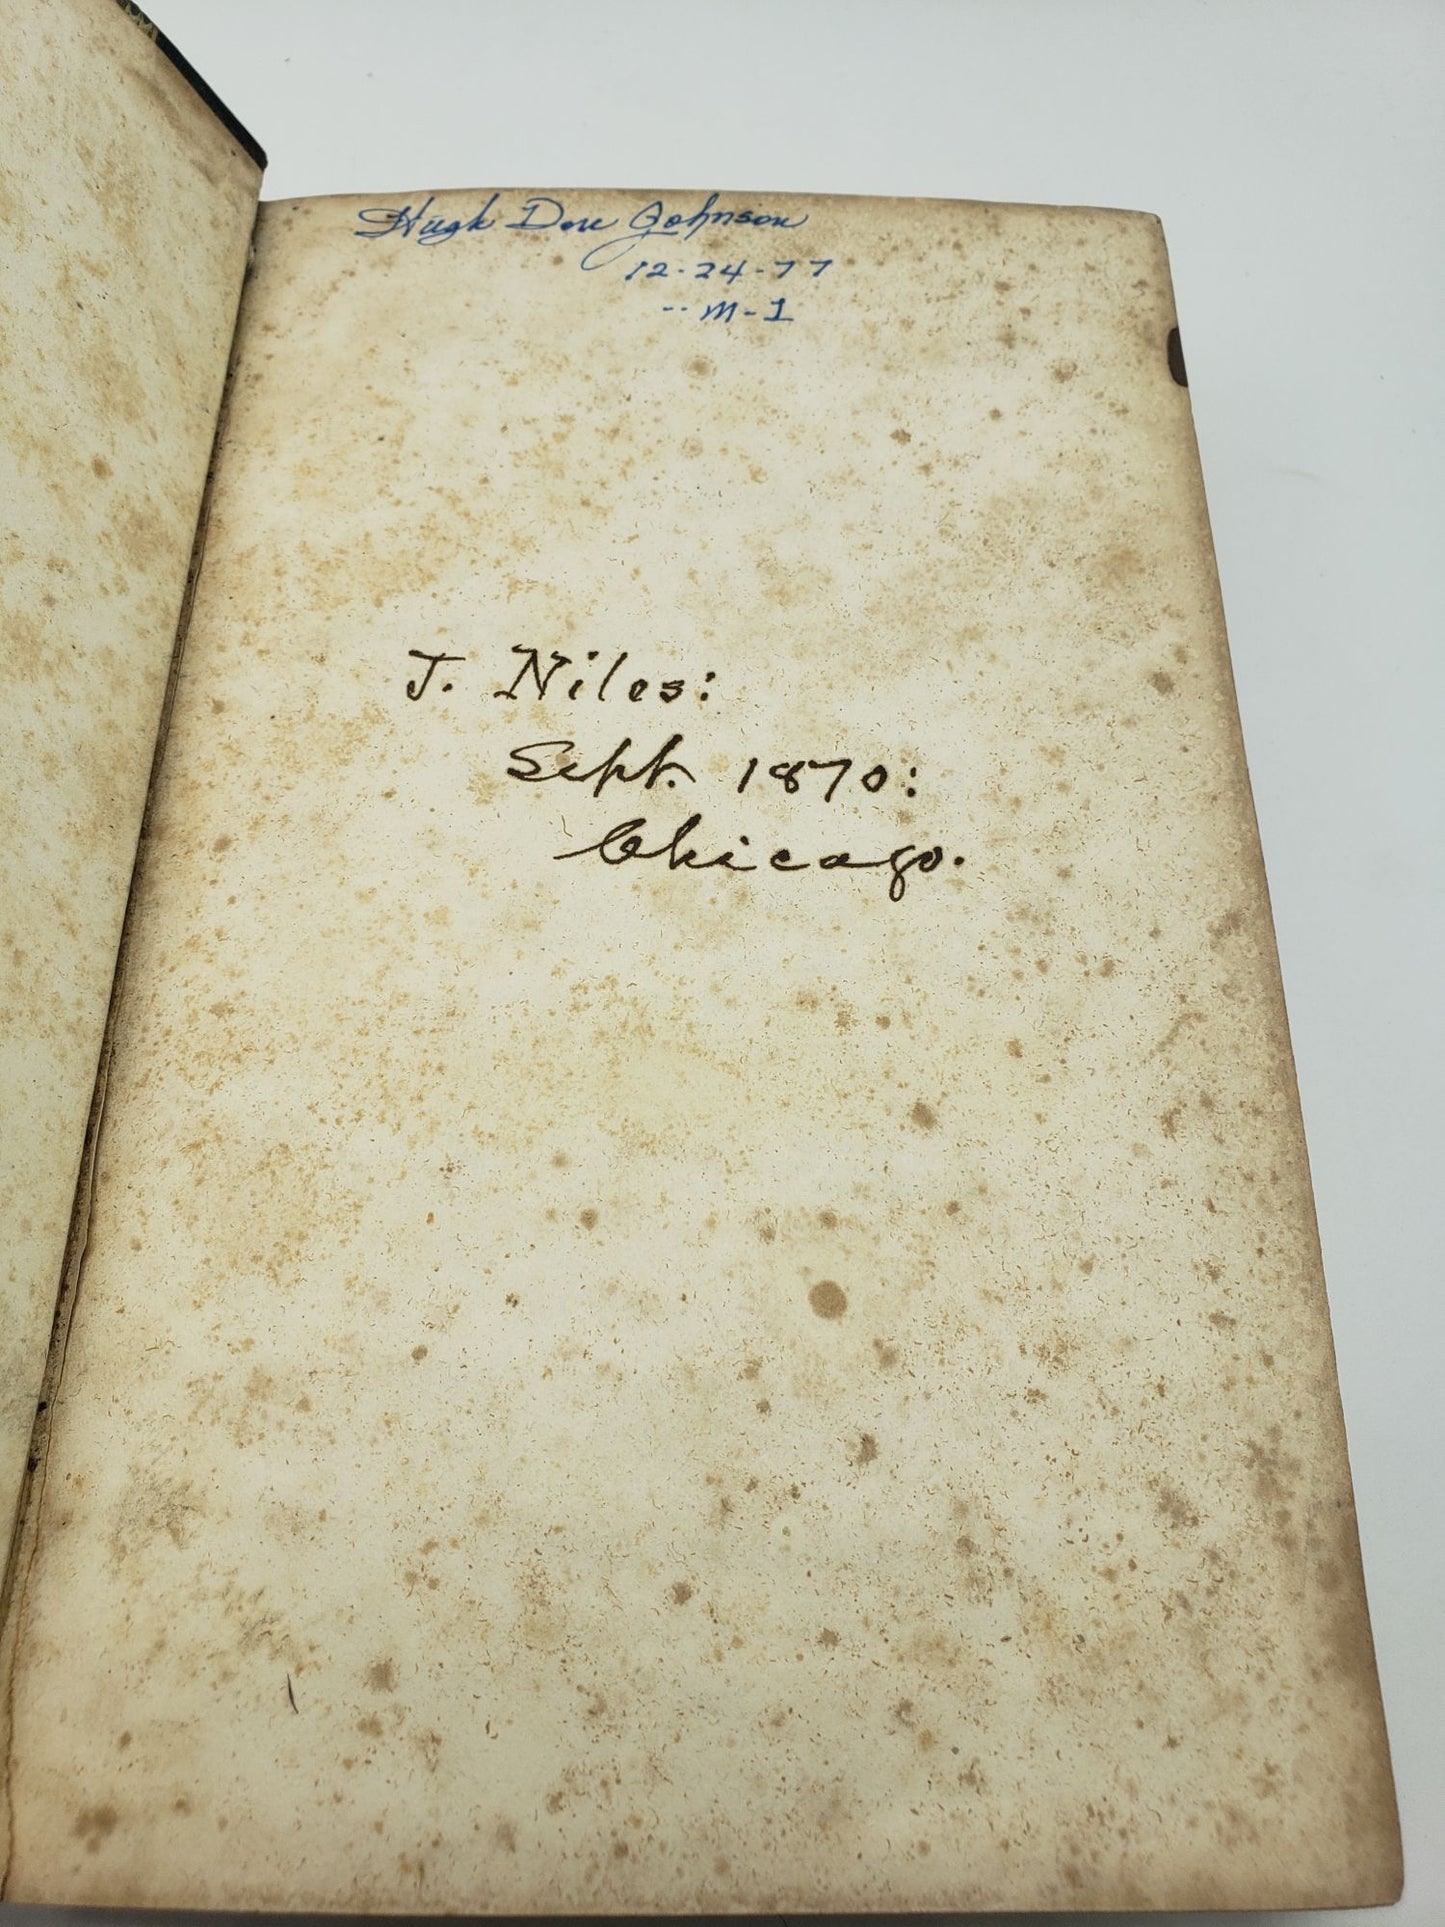 Hugh Dou Johnson
12-24-77
-- M-1
J. Niles:
Sept. 1870:
Chicago.